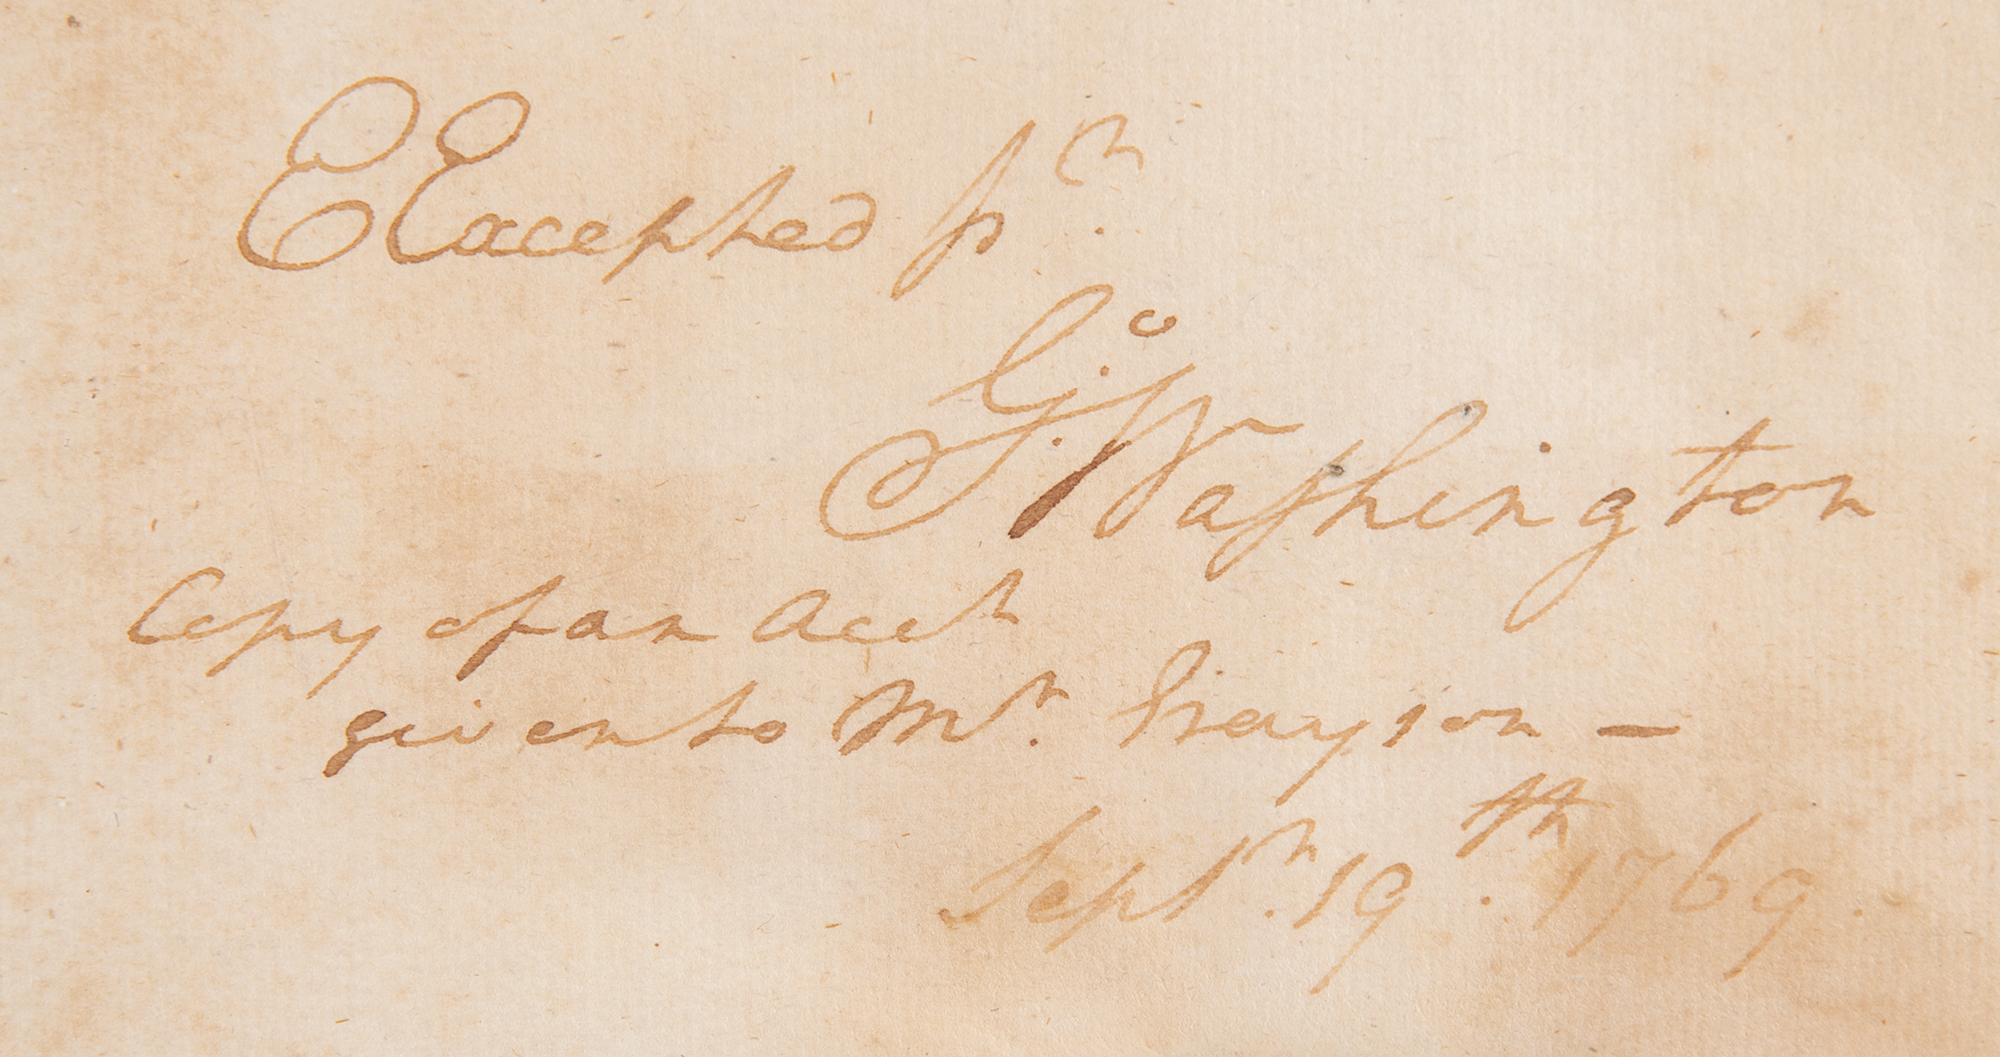 E Excepted pr.
Go. Washington
Copy of an Acct
given to Mr. Grayson —
Septr. 19th. 1769.